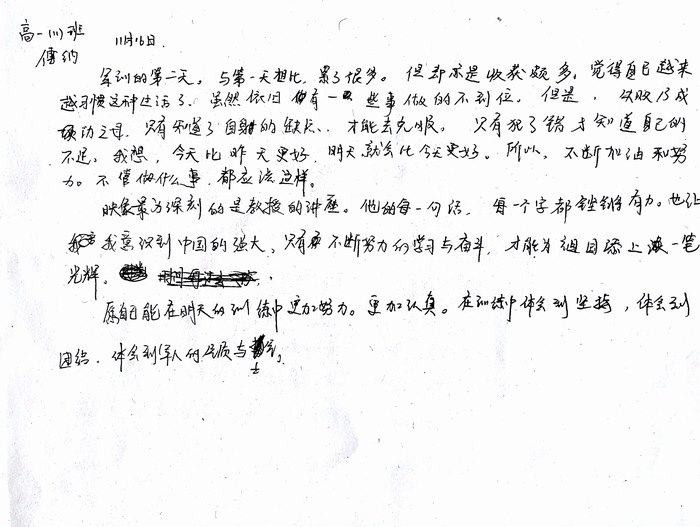 高一(11)班
傅纳
11月16日.
军训的第二天。与第一天相比，累了很多。但却亦是收获颇多，觉得自己越来
越习惯这种生活了。虽然依旧有一些事做的不到位。但是，失败乃成
功之母，只有知道了自身的缺点、才能去克服。只有犯了错才知道自己的
不足。我想，今天比昨天更好，明天就会比今天更好。所以，不断加油和努
力。不管做什么事，都应该这样。
映象最为深刻的是教授的讲座。他的每一句话，每一个字都铿锵有力。也让
我意识到中国的强大，只有不断努力的学习与奋斗，才能为祖国添上浓一笔
光辉。
愿自己能在明天的训练中更加努力。更加认真。在训练中体会到坚持，体会到
团结。体会到军人的气质与